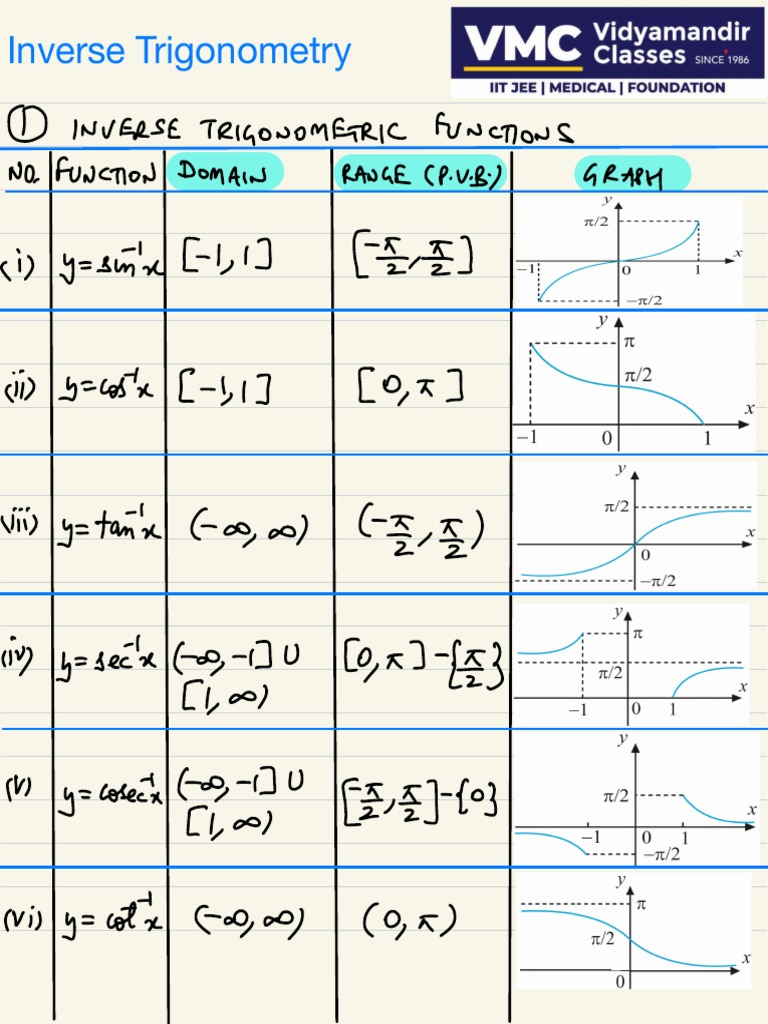 Inverse Trigonometry
VMC Vidyamandir Classes SINCE 1986
IIT JEE | MEDICAL | FOUNDATION
① INVERSE TRIGONOMETRIC FUNCTIONS
NO. FUNCTION DOMAIN RANGE (P.V.B.) GRAPH
(i) y = sin⁻¹x [-1, 1] [-π/2, π/2]
y π/2 x −1 0 1 −π/2
(ii) y = cos⁻¹x [-1, 1] [0, π]
y π π/2 x −1 0 1
(iii) y = tan⁻¹x (-∞, ∞) (-π/2, π/2)
y π/2 x 0 −π/2
(iv) y = sec⁻¹x (-∞, -1] ∪ [0, π] - {π/2}
[1, ∞)
y π π/2 x −1 0 1
(v) y = cosec⁻¹x (-∞, -1] ∪ [-π/2, π/2] - {0}
[1, ∞)
y π/2 x −1 0 1 −π/2
(vi) y = cot⁻¹x (-∞, ∞) (0, π)
y π π/2 x 0